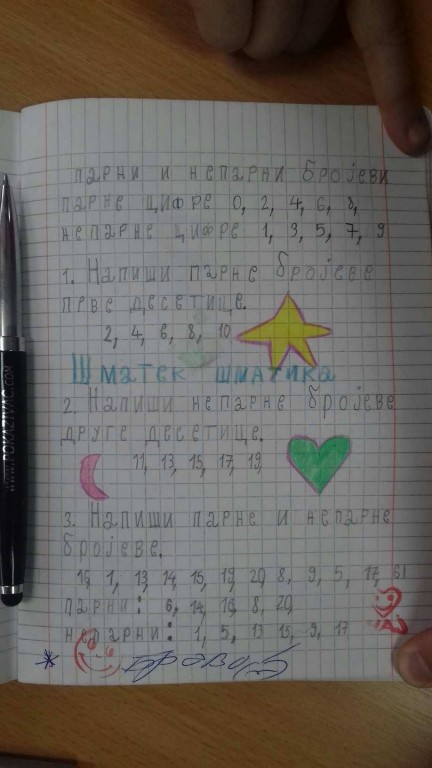 парни и непарни бројеви
парне цифре 0, 2, 4, 6, 8,
непарне цифре 1, 3, 5, 7, 9
1. Напиши парне бројеве
прве десетице.
2, 4, 6, 8, 10
Шматек шматика
2. Напиши непарне бројеве
друге десетице.
11, 13, 15, 17, 19,
3. Напиши парне и непарне
бројеве.
16, 1, 13, 14, 15, 19, 20, 8, 9, 5, 17, 6
парни: 6, 14, 16, 8, 20,
непарни: 1, 5, 13 15, 9, 17
WWW.POKAZIVAC.COM